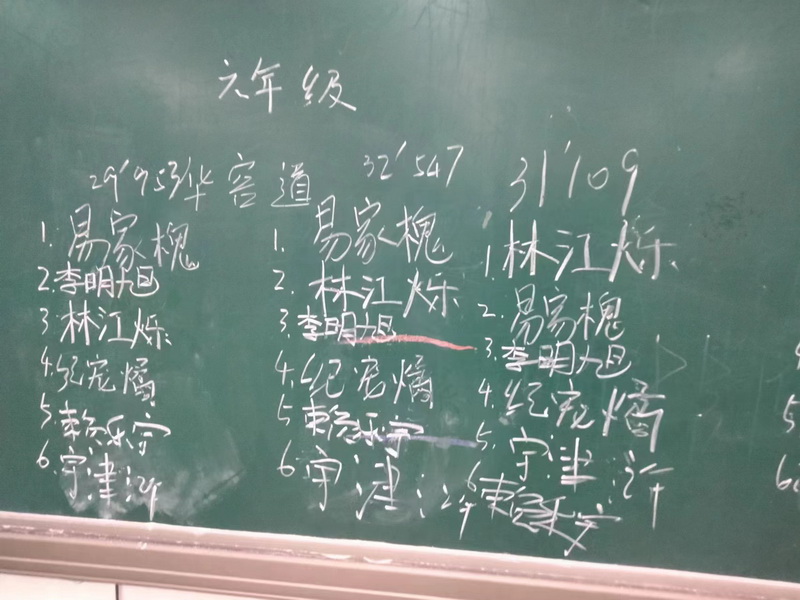 六年级
29'953华容道
1. 易家槐
2. 李明旭
3. 林江烁
4. 纪宠燏
5. 赖乐宇
6. 宇津汻
32'547
1. 易家槐
2. 林江烁
3. 李明旭
4. 纪宠燏
5. 赖乐宇
6. 宇津汻
31'109
1. 林江烁
2. 易家槐
3. 李明旭
4. 纪宠燏
5. 宇津汻
6. 赖乐宇
5
6